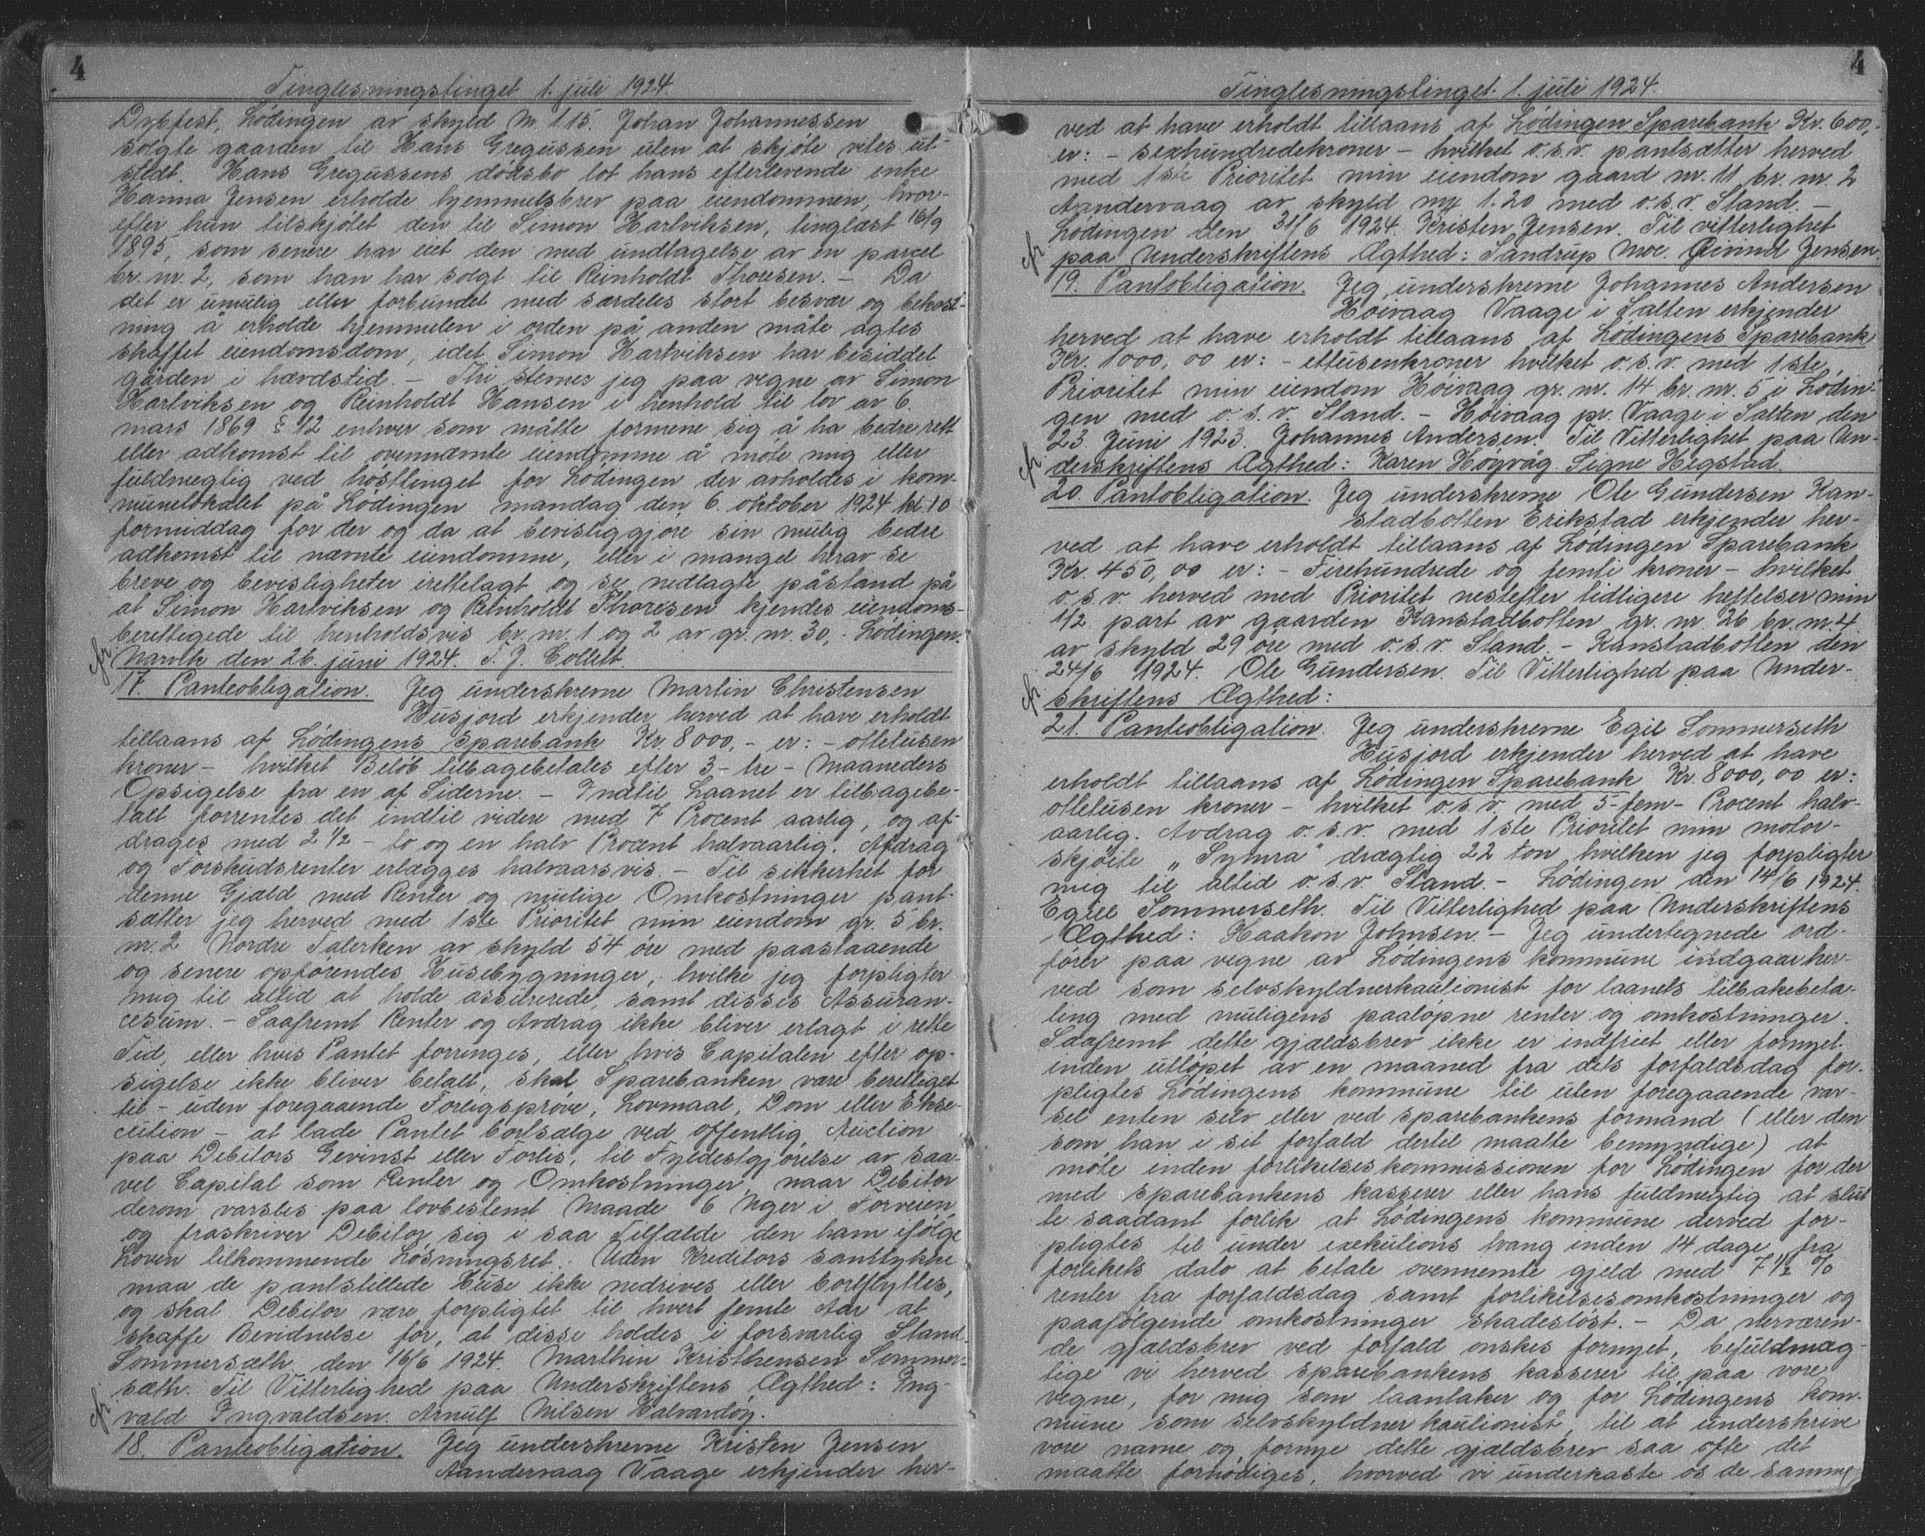 4
Tinglesningstinget 1. juli 1924.
Dypfest, Lödingen av skyld m. 1.15. Johan Johannessen
solgte gaarden til Hans Gregussen uten at skjöte vites ut-
stedt. Hans Gregussens dödsbo lot hans efterlevende enke
Hanna Jensen erholde hjemmelsbrev paa eiendommen, hvor-
efter hun tilskjötet den til Simon Hartviksen, tinglæst 16/9
1895, som senere har eiet den med undtagelse av en parcel
br. nr. 2, som han har solgt til Reinholdt Thoresen. – Da
det er umulig eller forbundet med særdeles stort besvær og bekost-
ning å erholde hjemmelen i orden på anden måte agtes
skaffet eiendomsdom, idet Simon Hartviksen har besiddet
gården i hævdstid. – Thi stevner jeg paa vegne av Simon
Hartviksen og Reinholdt Hansen i henhold til lov av 6.
mars 1869 § 12 enhver som måtte formene sig å ha bedre rett
eller adkomst til ovennæmte eiendomme å möte mig eller
fuldmegtig ved hösttinget for Lödingen der avholdes i kom-
munelokalet på Lödingen mandag den 6. oktober 1924 kl. 10
formiddag for der og da at bevisliggjöre sin mulig bedre
adkomst til nævnte eiendomme, eller i mangel herav se
breve og bevisligheter irettelagt og se nedlagt påstand på
at Simon Hartviksen og Reinholdt Thoresen kjendes eiendoms-
berettigede til henholdsvis br. nr. 1 og 2 av gr. nr. 30, - Lödingen.
Narvik den 26. juni 1924. T. J. Collett.
17. Panteobligation. Jeg underskrevne Martin Christensen
Husjord erkjender herved at have erholdt
tillaans af Lödingens Sparebank Kr. 8000,- er: - ottetusen
kroner - hvilket Belöb tilbagebetales efter 3 - tre - Maaneders
Opsigelse fra en af Siderne. - Indtil Laanet er tilbagebe-
talt forrentes det indtil videre med 7 Procent aarlig, og af-
drages med 2 1/2 - to og en halv Procent halvaarlig. Afdrag
og Forskudsrenter erlægges halvaarsvis. - Til sikkerhet for
denne Gjæld med Renter og mulige Omkostninger pant-
sætter jeg herved med 1ste Prioritet min eiendom gr. 5 br.
nr. 2 Nordre Talerken av skyld 54 öre med paastaaende
og senere opförendes Husebygninger, hvilke jeg forpligter
mig til altid at holde assurerede, samt disses Assuran-
cesum. - Saafremt Renter og Avdrag ikke bliver erlagt i rette
Tid, eller hvis Pantet forringes, eller hvis Capitalen efter op-
sigelse ikke bliver betalt, skal Sparebanken være berettiget
til - uden foregaaende Forligspröve, Lovmaal, Dom eller Ekse-
cution - at lade Pantet bortsælge ved offentlig Auction
paa Debitors Gevinst eller Forlis, til Fyldestgjörelse av saa-
vel Capital som Renter og Omkostninger, naar Debitor
derom varsles paa lovbestemt Maade 6 Uger i Forveien,
og fraskriver Debitor sig i saa Tilfælde den ham ifölge
Loven tilkommende Lösningsret. Uden Kreditors samtykke
maa de pantstillede Huse ikke nedrives eller bortflyttes,
og skal Debitor være forpligtet til hvert femte Aar at
skaffe Bevidnelse for, at disse holdes i forsvarlig Stand.
Sommersæth den 16/6 1924. Marthin Kristhensen Sommer-
sæth. Til Vitterlighed paa Underskriftens Ægthed: Ing-
vald Ingvaldsen. Arnulf Nilsen Halvardöy.
18. Panteobligation. Jeg underskrevne Kristen Jensen
Aandervaag Vaage erkjender her-
4
Tinglesningstinget 1. juli 1924.
ved at have erholdt tillaans af Lödingen Sparebank Kr. 600,-
er: - sexhundredekroner - hvilket o.s.v. pantsætter herved
med 1ste Prioritet min eiendom gaard nr. 11 br. nr. 2
Aandervaag av skyld my 1.20 med o.s.v. Stand. -
Lödingen den 21/6 1924. Kristen Jensen. Til vitterlighet
paa Underskriftens Ægthed: Sandrup Moe. Eivind Jensen.
19. Pantobligation. Jeg underskrevne Johannes Andersen
Höivaag Vaage i Salten erkjender
herved at have erholdt tillaans af Lödingens Sparebank
Kr. 1000,00 er: - ettusenkroner hvilket o.s.v. med 1ste
Prioritet min eiendom Höivaag gr. nr. 14 br. nr. 5 i Lödin-
gen med o.s.v. Stand. - Höivaag pr. Vaage i Salten den
23 Juni 1923. Johannes Andersen. Til Vitterlighet paa Un-
derskriftens Ægthed: Karen Höyvåg. Signe Hegstad.
20. Pantobligation. Jeg underskrevne Ole Gundersen Kan-
stadbotten Erikstad erkjender her-
ved at have erholdt tillaans af Lödingen Sparebank
Kr. 450,00 er: - Firehundrede og femti kroner - hvilket
o.s.v. herved med Prioritet nestefter tidligere heftelser min
1/2 part av gaarden Kanstadbotten gr. nr. 26 br. nr. 4
av skyld 29 öre med o.s.v. Stand. - Kanstadbotten den
24/6 1924. Ole Gundersen. Til Vitterlighed paa Under-
skriftens Ægthed:
21. Panteobligation. Jeg underskrevne Egil Sommerseth
Husjord erkjender herved at have
erholdt tillaans af Lödingen Sparebank Kr. 8000,00 er:
ottetusen kroner - hvilket o.s.v. med 5 - fem - Procent halv-
aarlig. Avdrag o.s.v. med 1ste Prioritet min motor-
skjöite „Symra" drægtig 22 ton hvilken jeg forpligter
mig til altid o.s.v. Stand. - Lödingen den 14/6 1924.
Egil Sommerseth. Til Vitterlighed paa Underskriftens
Ægthed: Haakon Johnsen. - Jeg undertegnede ord-
förer paa vegne av Lödingens kommune indgaar her-
ved som selvskyldnerkautionist for laanets tilbakebeta-
ling med muligens paalöpne renter og omkostninger.
Saafremt dette gjældsbrev ikke er indfriet eller fornyet
inden utlöpet av en maaned fra dets forfaldsdag for-
pligtes Lödingens kommune til uten foregaaende var-
sel enten selv eller ved sparebankens formand (eller den
som han i sit forfald dertil maatte bemyndige) at
möte inden forlikelseskommissionen for Lödingen for der
med sparebankens kasserer eller hans fuldmegtig at slut
te saadant forlik at Lödingens kommune derved for-
pligtes til under exekutions tvang inden 14 dage fra
forlikets dato at betale ovennemte gjeld med 7 1/2 %
renter fra forfaldsdag samt forlikelsesomkostninger og
paafölgende omkostninger skadeslöst. - Da nerværen-
de gjældsbrev ved forfald önskes fornyet, befuldmæg-
tige vi herved sparebankens kasserer til paa vore
vegne, for mig som laantaker og for Lödingens kom-
mune som selvskyldnerkautionist, til at underskrive
vore navne og fornye dette gjældsbrev saa ofte det
maatte fornödiges, hvorved vi underkaste os de samme